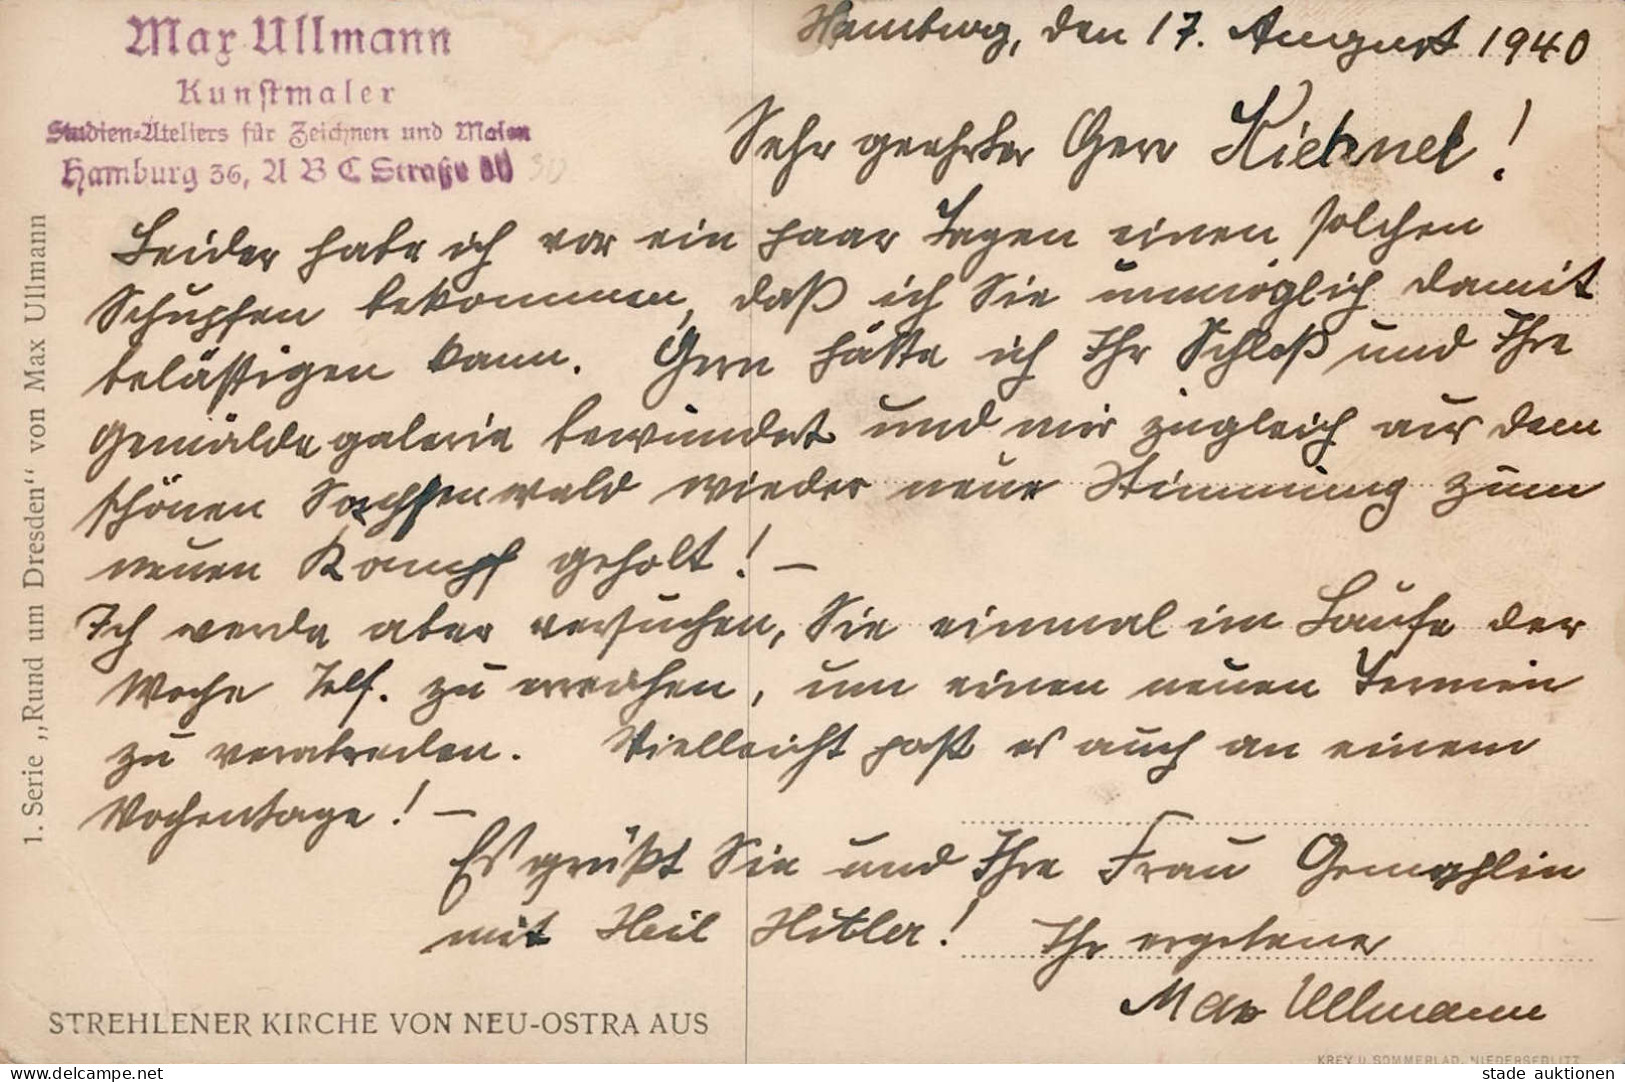 Max Ullmann
Kunstmaler
Studien-Ateliers für Zeichnen und Malen
Hamburg 36, A B C Straße
Hamburg, den 17. August 1940
Sehr geehrter Herr Kiehnel!
Leider habe ich vor ein paar Tagen einen solchen
Schnupfen bekommen, daß ich Sie unmöglich damit
belästigen kann. Gern hätte ich Ihr Schloß und Ihre
Gemäldegalerie bewundert und mir zugleich aus dem
schönen Sachsenwald wieder neue Stimmung zum
neuen Kampf geholt! –
Ich werde aber versuchen, Sie einmal im Laufe der
Woche Telf. zu erreichen, um einen neuen Termin
zu verabreden. Vielleicht paßt es auch an einem
Wochentage! –
Es grüßt Sie und Ihre Frau Gemahlin
mit Heil Hitler! Ihr ergebener
Max Ullmann
1. Serie „Rund um Dresden“ von Max Ullmann
STREHLENER KIRCHE VON NEU-OSTRA AUS
KREY U. SOMMERLAD, NIEDERSEDLITZ
delcampe.net
stade auktionen